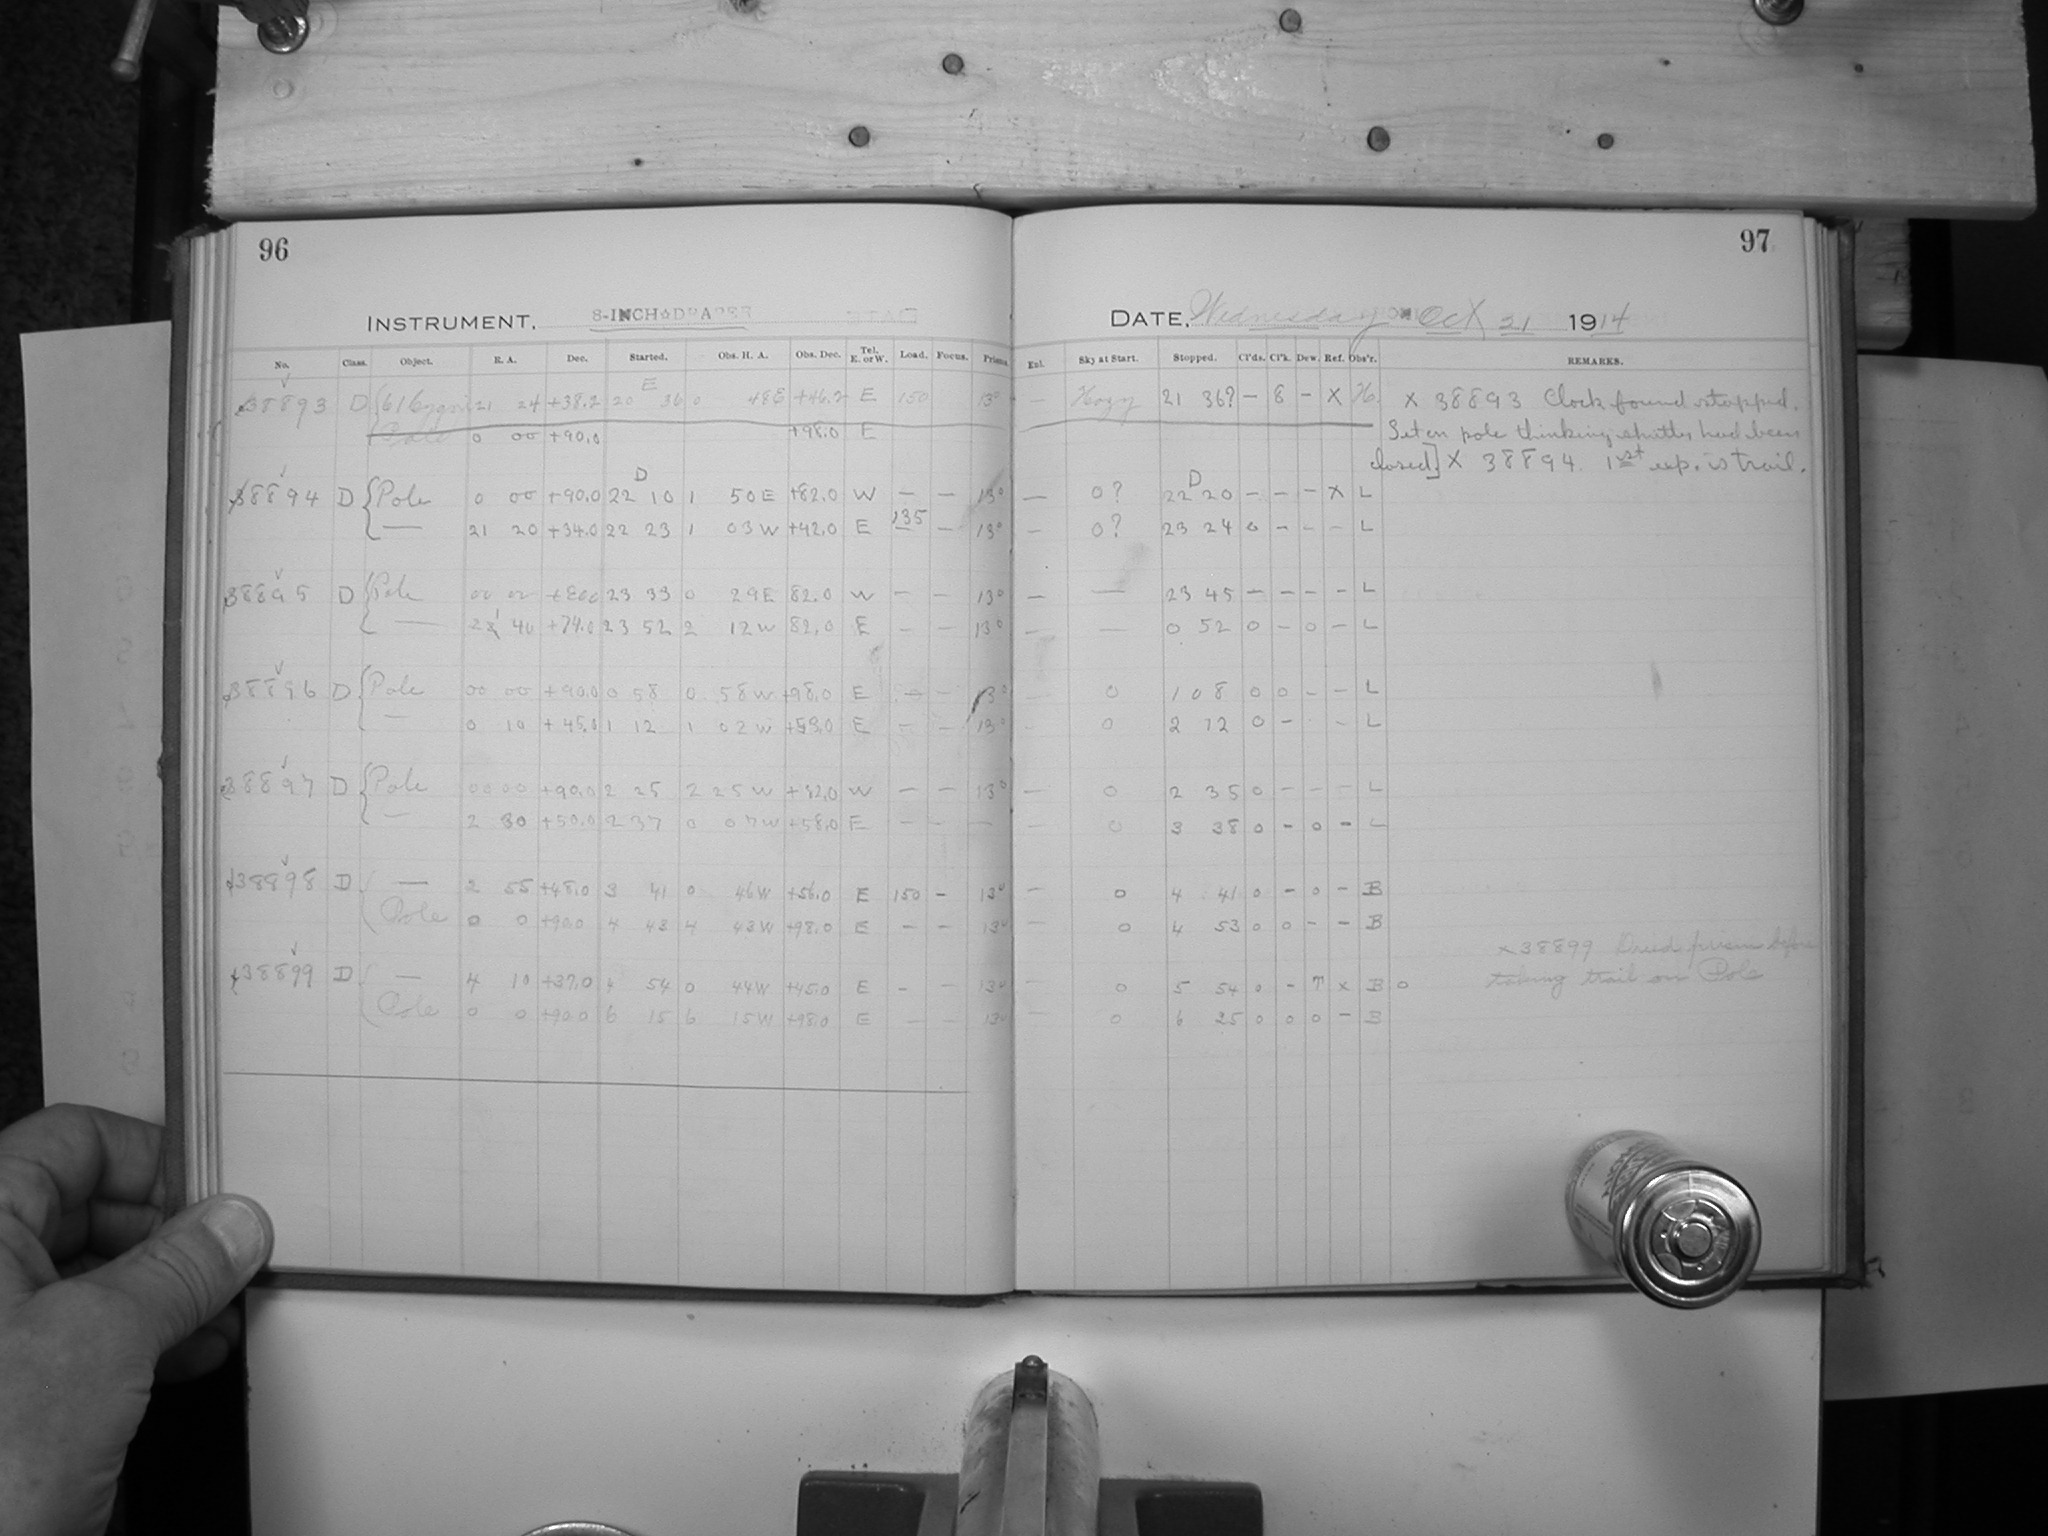 96
97
INSTRUMENT, 8-INCH DRAPER
DATE, Wednesday Oct 21 1914
No. Class. Object. R. A. Dec. Started. Obs. H. A. Obs. Dec. Tel. E. or W. Load. Focus. Prisms. Enl. Sky at Start. Stopped. Cl'ds. Cl'k. Dew. Ref. Obs'r. REMARKS.
38893 D 61 Cygni 21 24 +38.2 20 E 36 0 48E +46.2 E 150 13° — Hazy 21 36? — 8 — X H. X 38893 Clock found stopped.
Pole 0 00 +90.0 +98.0 E Set on pole thinking shutter had been
closed] X 38894. 1st exp. is trail.
38894 D Pole 0 00 +90.0 22 D 10 1 50E +82.0 W — — 13° — 0? 22 D 20 — — — X L
— 21 20 +34.0 22 23 1 03W +42.0 E 135 — 13° — 0? 23 24 0 — — — L
38895 D Pole 00 00 23 33 0 29E 82.0 W — — 13° — — 23 45 — — — — L
— 40 +74.0 23 52 2 12W 82.0 E — — 13° — — 0 52 0 — 0 — L
38896 D Pole 00 00 +90.0 0 58 0 58W +98.0 E — — 13° 0 1 08 0 0 — — L
— 0 10 +45.0 1 12 1 02W +53.0 E — — 13° — 0 2 12 0 — — L
38897 D Pole 00 00 +90.0 2 25 2 25W +82.0 W — — 13° — 0 2 35 0 — — — L
— 2 30 +50.0 2 37 0 07W +58.0 E — — — — 0 3 38 0 — 0 — L
38898 D — 2 55 +48.0 3 41 0 46W +56.0 E 150 — 13° — 0 4 41 0 — 0 — B
Pole 0 0 +90.0 4 43 4 43W +98.0 E — — 13° — 0 4 53 0 0 — — B
X 38899 Dried prism before
38899 D — 4 10 +37.0 4 54 0 44W +45.0 E — — 13° — 0 5 54 0 — T X B 0 taking trail on Pole
Pole 0 0 +90.0 6 15 6 15W +98.0 E — — 13° — 0 6 25 0 0 0 — B